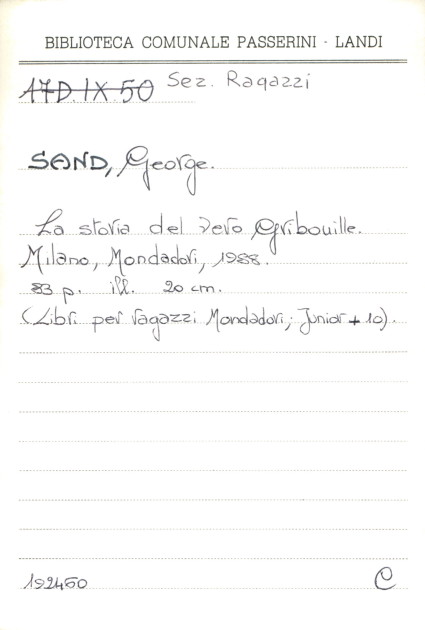 BIBLIOTECA COMUNALE PASSERINI · LANDI
17D.IX.50 Sez. Ragazzi
SAND, George.
La storia del vero Gribouille.
Milano, Mondadori, 1988.
83 p. ill. 20 cm.
(Libri per ragazzi Mondadori; Junior + 10).
192450 C